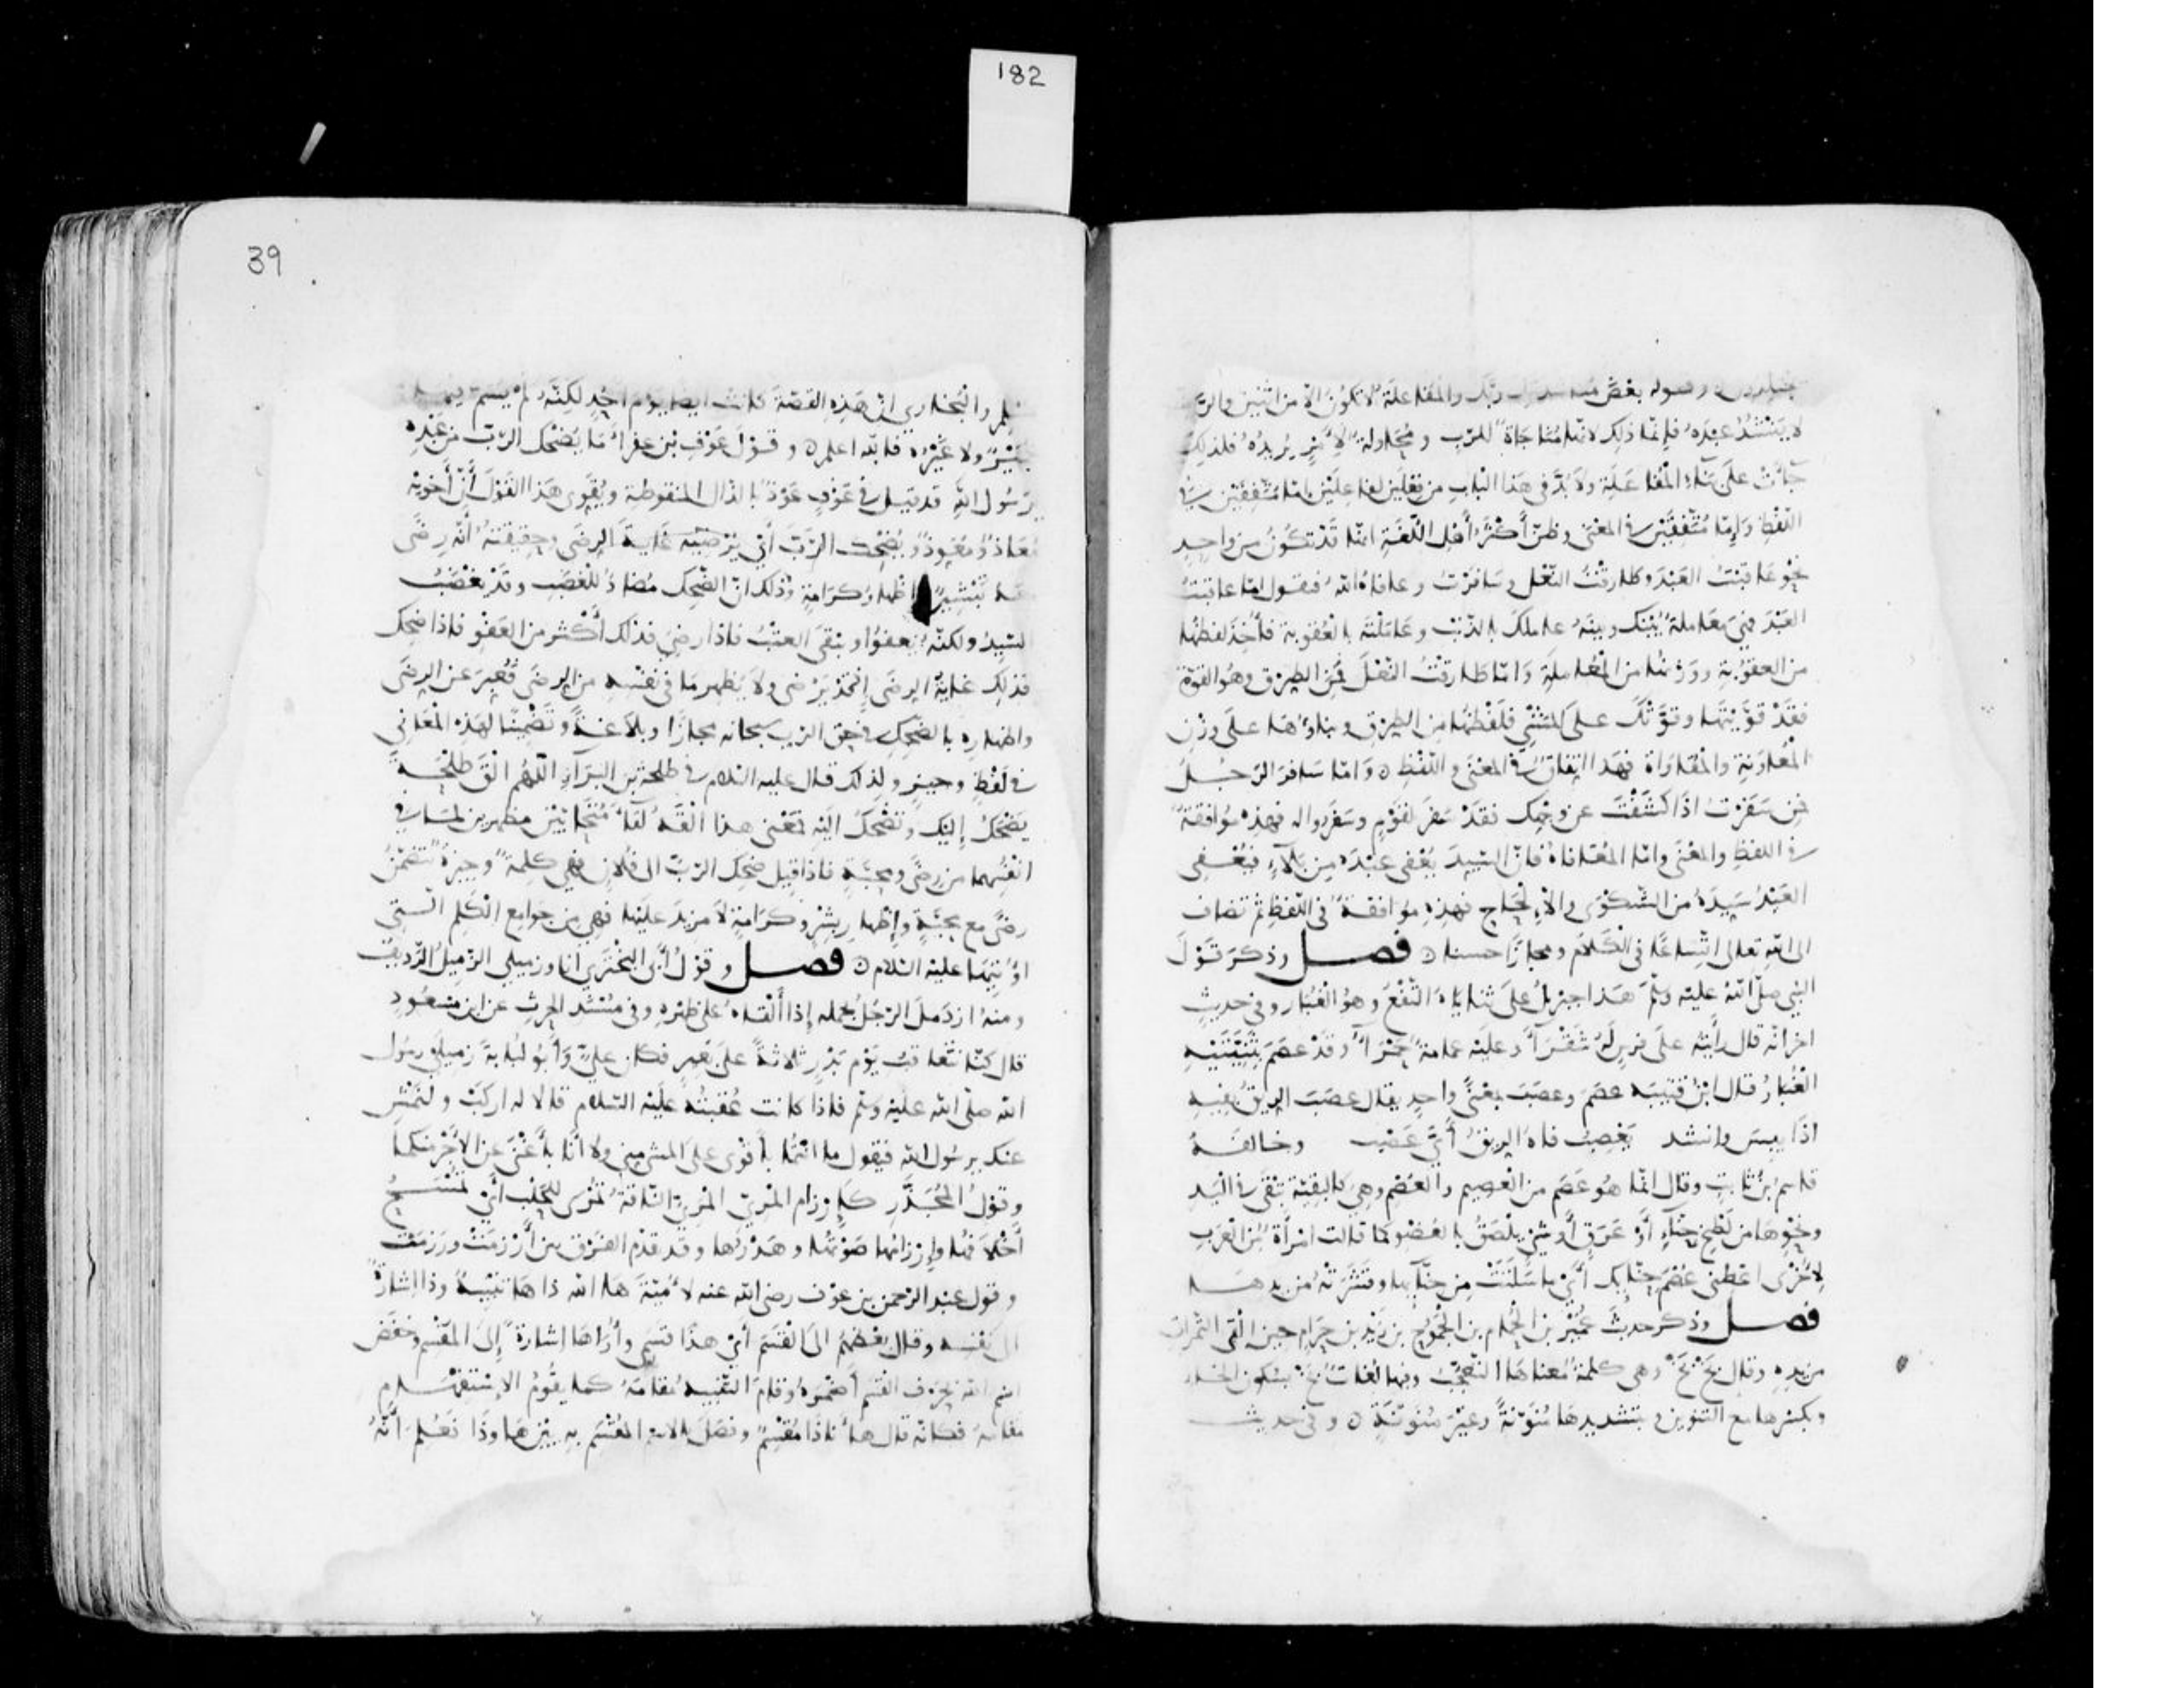 182
وقوله بعض مناشدتك ربك والمفاعلة لا تكون الا من اثنين والرب
لا ينشد عبده فإنما ذلك لانها مناجاة للرب ومحاولة لأمر يريده فلذلك
جاءت على بناء المفاعلة ولا بد في هذا الباب من فعلين لفاعلين إما متفقين في
اللفظ وإما متفقين في المعنى وظن أكثر أهل اللغة انها قد تكون من واحد
نحو عاقبت العبد وطارقت النعل وسافرت وعافاه الله فنقول اما عاقبت
العبد فهي معاملة بينك وبينه عاملك بالذنب وعاملته بالعقوبة فأخذ لفظها
من العقوبة ووزنها من المعاملة واما طارقت النعل فمن الطرق وهو القوة
فقد قويتها وقوتك على المشي فلفظها من الطرق وبناؤها على وزن
المعاونة والمقاواة فهذا اتفاق في المعنى واللفظ ٥ واما سافر الرجل
فمن سفرت اذا كشفت عن وجهك فقد سفر لقوم وسفروا له فهذه موافقة
في اللفظ والمعنى واما المعافاة فان السيد يعفي عبده من بلاء فيعفي
العبد سيده من الشكوى والإلحاح فهذه موافقة في اللفظ ثم تضاف
الى الله تعالى اتساعا في الكلام ومجازا حسنا ٥ فصل وذكر قول
النبي صلى الله عليه وسلم هذا جبريل على ثناياه النقع وهو الغبار وفي حديث
اخر انه قال رأيته على فرس له شقراء وعليه عمامة حمراء وقد عصم بثنيتيه
الغبار قال ابن قتيبه عصم وعصب بمعنى واحد يقال عصب الريق بفيه
اذا يبس وانشد يعصب فاه الريق أي عصب وخالفه
قاسم بن ثابت وقال انما هو عصم من العصيم والعصم وهي كالبقية تبقى في اليد
ونحوها من لطخ حناء أو عرق أو شيء يلصق بالعضو كما قالت امرأة من العرب
لأخرى اعطني عصم حنائك أي ما سلتت من حنائها وقشرته من يدها
فصل وذكر حديث عمير بن الحمام بن الجموح بن زيد بن حرام حين القى التمرات
من يده وقال بخ بخ وهي كلمة معناها التعجب وفيها لغات بخ بسكون الخاء
وبكسرها مع التنوين وبتشديدها منونة وغير منونة ٥ وفي حديث
39
مسلم والبخاري ان هذه القصة كانت ايضا يوم احد لكنه لم يسم فيها
عمير ولا غيره فالله اعلم ٥ وقول عوف بن عفراء ما يضحك الرب من عبده
يرسول الله قد قيل في عوف عوذ بالذال المنقوطة ويقوي هذا القول أن أخويه
معاذ ومعوذ ويضحك الرب أي يرضيه غاية الرضى وحقيقته أنه رضى
معه تبشير واظهار كرامة وذلك ان الضحك مضاد للغضب وقد يغضب
السيد ولكنه يعفوا ويبقى العتب فاذا رضي فذلك أكثر من العفو فاذا ضحك
فذلك غاية الرضى إذ قد يرضى ولا يظهر ما في نفسه من الرضى فعبر عن الرضى
واظهاره بالضحك في حق الرب سبحانه مجازا وبلاغة وتضمينا لهذه المعاني
في لفظ وجيز ولذلك قال عليه السلام في طلحة بن البراء اللهم الق طلحة
يضحك إليك وتضحك اليه فمعنى هذا القه لقاء متحابين مظهرين لما في
انفسهما من رضى ومحبة فاذا قيل ضحك الرب الى فلان فهي كلمة وجيزة تتضمن
رضى مع محبة وإظهار بشر وكرامة لا مزيد عليها فهي من جوامع الكلم التي
اوتيها عليه السلام ٥ فصل وقول أبي البختري انا وزميلي الزميل الرديف
ومنه ازدمل الرجل بحمله إذا ألقاه على ظهره وفي مسند الحرث عن ابن مسعود
قال كنا نتعاقب يوم بدر ثلاثة على بعير فكان علي وأبو لبابة زميلي رسول
الله صلى الله عليه وسلم فاذا كانت عقبته عليه السلام قالا له اركب ولنمش
عنك يرسول الله فيقول ما انتما بأقوى على المشي مني ولا أنا بأغنى عن الأجر منكما
وقول المجذر كإرزام المري المري الناقة تمرى للحلب أي تمسح
أخلافها وإرزامها صوتها وهدرها وقد قدم الفرق بين أرزمت ورزمت
وقول عبد الرحمن بن عوف رضي الله عنه لأمية ها الله ذا ها تنبيه وذا إشارة
الى نفسه وقال بعضهم الى القسم أي هذا قسمي وأراها إشارة إلى المقسم وخفض
اسم الله بحرف القسم أضمره وقام التنبيه مقامه كما يقوم الاستفهام
مقامه فكانه قال هأناذا مقسم وفصل بالاسم المقسم به بين ها وذا فعلم أنه